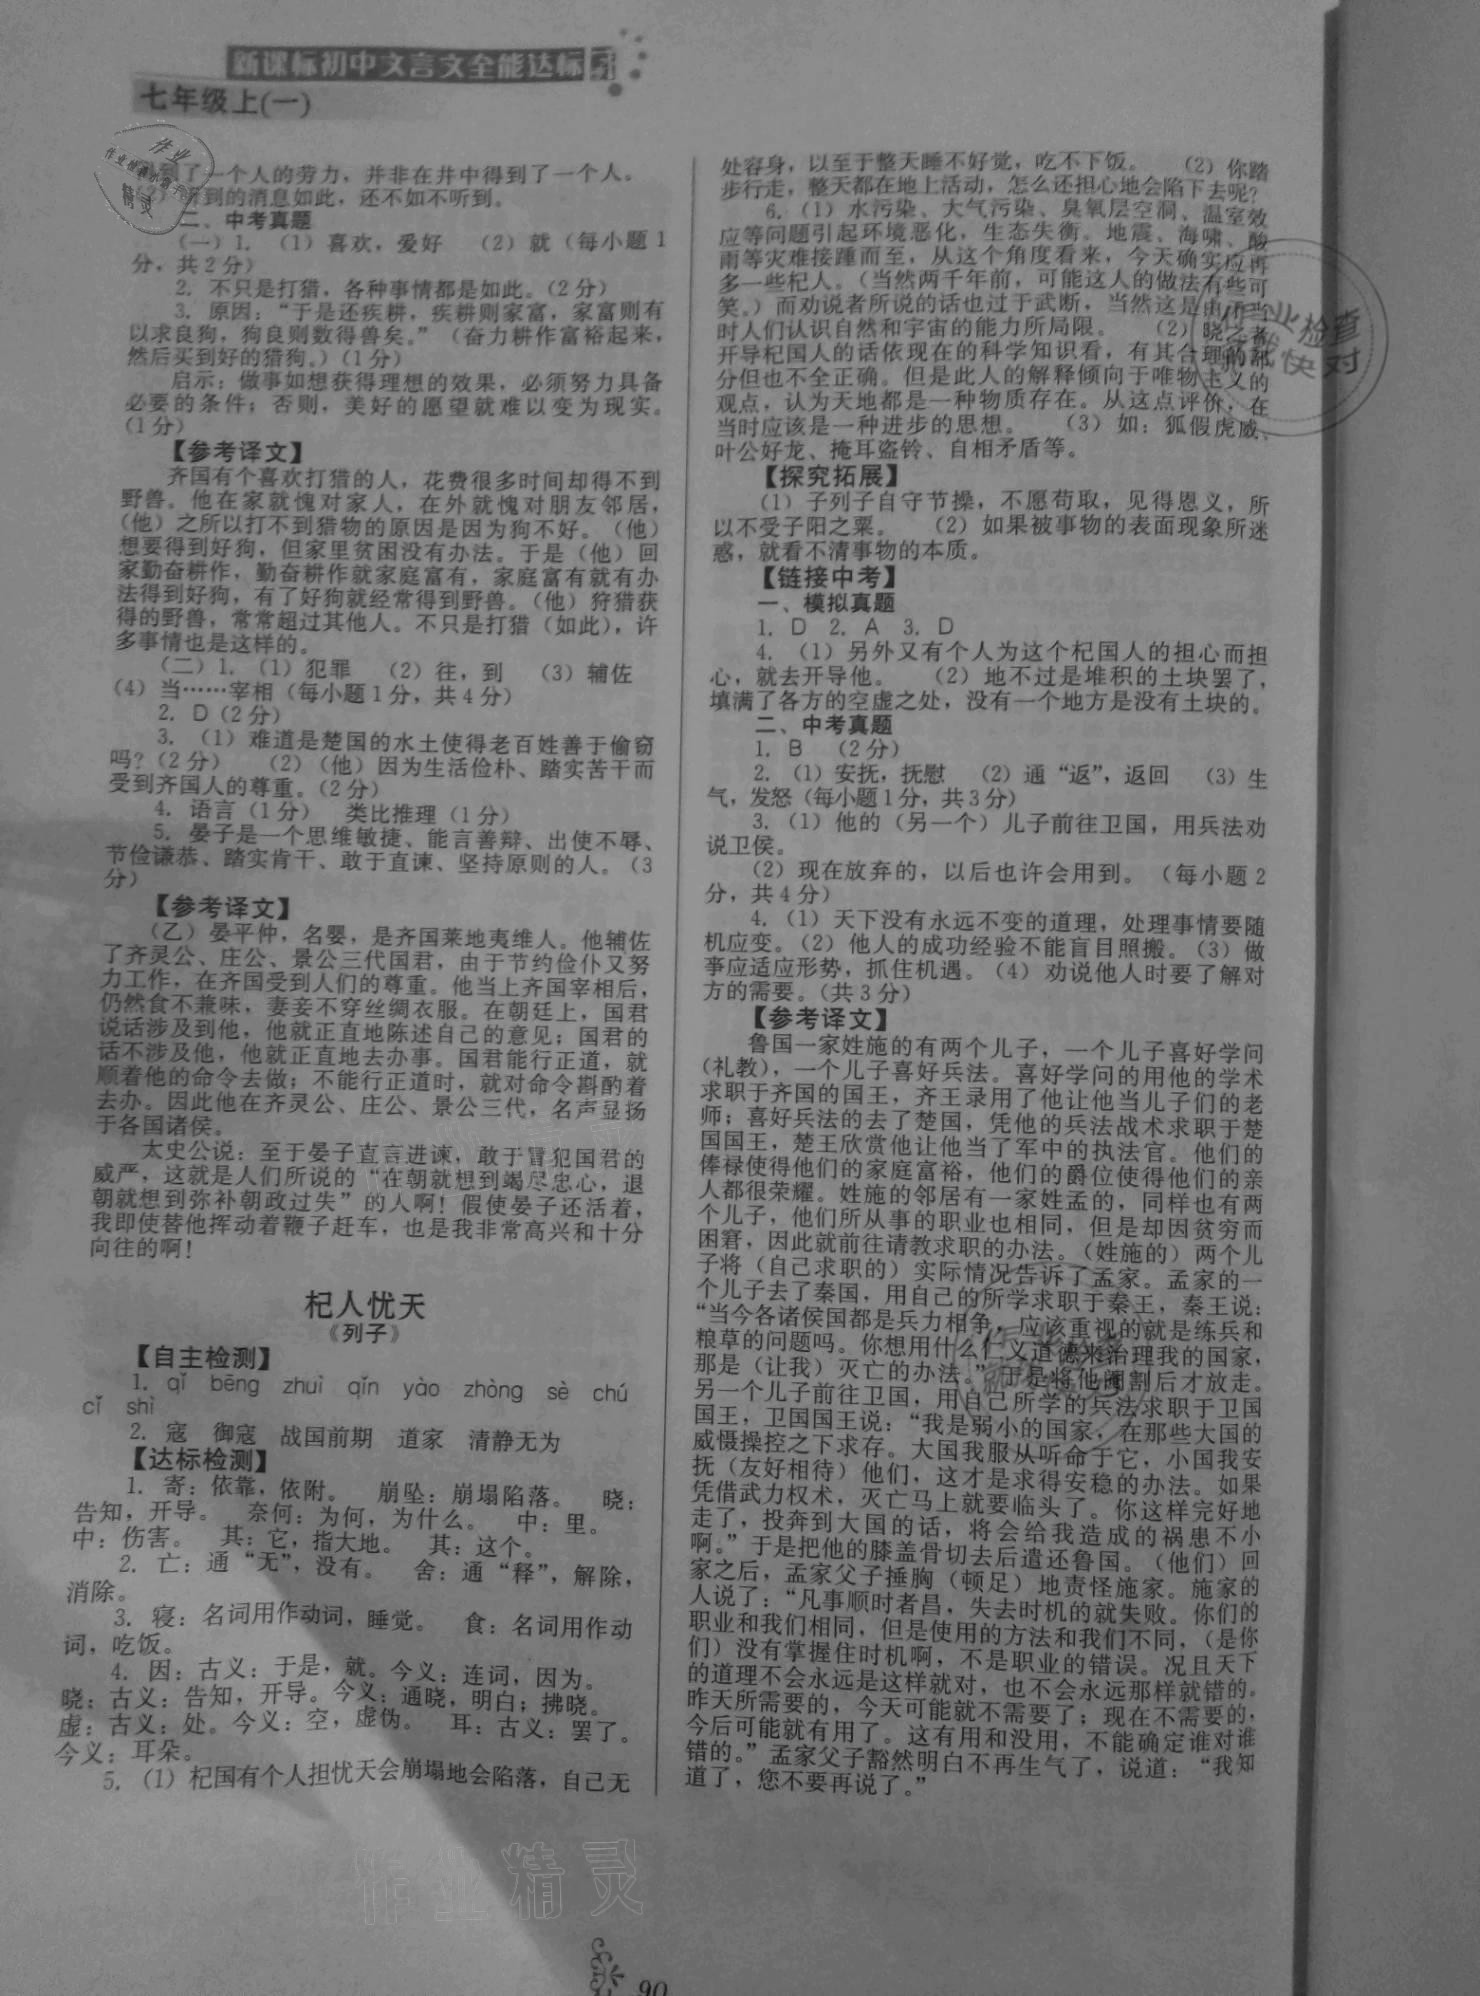 新课标初中文言文全能达标
七年级上(一)
到了一个人的劳力，并非在井中得到了一个人。
(2)听到的消息如此，还不如不听到。
二、中考真题
(一)1.（1)喜欢，爱好 （2)就（每小题1
分，共2分）
2. 不只是打猎，各种事情都是如此。(2分)
3. 原因：“于是还疾耕，疾耕则家富，家富则有
以求良狗，狗良则数得兽矣。”（奋力耕作富裕起来，
然后买到好的猎狗。）(1分)
启示：做事如想获得理想的效果，必须努力具备
必要的条件；否则，美好的愿望就难以变为现实。
(1分)
【参考译文】
齐国有个喜欢打猎的人，花费很多时间却得不到
野兽。他在家就愧对家人，在外就愧对朋友邻居，
(他)之所以打不到猎物的原因是因为狗不好。(他)
想要得到好狗，但家里贫困没有办法。于是（他）回
家勤奋耕作，勤奋耕作就家庭富有，家庭富有就有办
法得到好狗，有了好狗就经常得到野兽。(他)狩猎获
得的野兽，常常超过其他人。不只是打猎（如此)，许
多事情也是这样的。
(二)1.（1)犯罪 （2)往，到 （3)辅佐
(4)当……宰相（每小题1分，共4分）
2. D(2分)
3.（1)难道是楚国的水土使得老百姓善于偷窃
吗?(2分) （2)(他)因为生活俭朴、踏实苦干而
受到齐国人的尊重。(2分)
4. 语言(1分) 类比推理(1分)
5. 晏子是一个思维敏捷、能言善辩、出使不辱、
节俭谦恭、踏实肯干、敢于直谏、坚持原则的人。(3
分)
【参考译文】
（乙）晏平仲，名婴，是齐国莱地夷维人。他辅佐
了齐灵公、庄公、景公三代国君，由于节约俭仆又努
力工作，在齐国受到人们的尊重。他当上齐国宰相后，
仍然食不兼味，妻妾不穿丝绸衣服。在朝廷上，国君
说话涉及到他，他就正直地陈述自己的意见；国君的
话不涉及他，他就正直地去办事。国君能行正道，就
顺着他的命令去做；不能行正道时，就对命令斟酌着
去办。因此他在齐灵公、庄公、景公三代，名声显扬
于各国诸侯。
太史公说：至于晏子直言进谏，敢于冒犯国君的
威严，这就是人们所说的“在朝就想到竭尽忠心，退
朝就想到弥补朝政过失”的人啊！假使晏子还活着，
我即使替他挥动着鞭子赶车，也是我非常高兴和十分
向往的啊！
杞人忧天
《列子》
【自主检测】
1. qǐ bēng zhuì qǐn yào zhòng sè chú
cǐ shì
2. 寇 御寇 战国前期 道家 清静无为
【达标检测】
1. 寄：依靠，依附。 崩坠：崩塌陷落。 晓：
告知，开导。 奈何：为何，为什么。 中：里。
中：伤害。 其：它，指大地。 其：这个。
2. 亡：通“无”，没有。 舍：通“释”，解除，
消除。
3. 寝：名词用作动词，睡觉。 食：名词用作动
词，吃饭。
4. 因：古义：于是，就。今义：连词，因为。
晓：古义：告知，开导。今义：通晓，明白；拂晓。
虚：古义：处。今义：空，虚伪。 耳：古义：罢了。
今义：耳朵。
5.（1)杞国有个人担忧天会崩塌地会陷落，自己无
处容身，以至于整天睡不好觉，吃不下饭。 （2)你踏
步行走，整天都在地上活动，怎么还担心地会陷下去呢?
6.（1)水污染、大气污染、臭氧层空洞、温室效
应等问题引起环境恶化，生态失衡。地震、海啸、酸
雨等灾难接踵而至，从这个角度看来，今天确实应再
多一些杞人。（当然两千年前，可能这人的做法有些可
笑。）而劝说者所说的话也过于武断，当然这是由于当
时人们认识自然和宇宙的能力所局限。 （2)晓之者
开导杞国人的话依现在的科学知识看，有其合理的部
分但也不全正确。但是此人的解释倾向于唯物主义的
观点，认为天地都是一种物质存在。从这点评价，在
当时应该是一种进步的思想。 （3)如：狐假虎威、
叶公好龙、掩耳盗铃、自相矛盾等。
【探究拓展】
(1)子列子自守节操，不愿苟取，见得恩义，所
以不受子阳之粟。 （2)如果被事物的表面现象所迷
惑，就看不清事物的本质。
【链接中考】
一、模拟真题
1. D 2. A 3. D
4.（1)另外又有个人为这个杞国人的担心而担
心，就去开导他。 （2)地不过是堆积的土块罢了，
填满了各方的空虚之处，没有一个地方是没有土块的。
二、中考真题
1. B （2分)
2.（1)安抚，抚慰 （2)通“返”，返回 （3)生
气，发怒（每小题1分，共3分）
3.（1)他的（另一个）儿子前往卫国，用兵法劝
说卫侯。
(2)现在放弃的，以后也许会用到。（每小题2
分，共4分）
4.（1)天下没有永远不变的道理，处理事情要随
机应变。(2)他人的成功经验不能盲目照搬。(3)做
事应适应形势，抓住机遇。(4)劝说他人时要了解对
方的需要。(共3分)
【参考译文】
鲁国一家姓施的有两个儿子，一个儿子喜好学问
(礼教)，一个儿子喜好兵法。喜好学问的用他的学术
求职于齐国的国王，齐王录用了他让他当儿子们的老
师；喜好兵法的去了楚国，凭他的兵法战术求职于楚
国国王，楚王欣赏他让他当了军中的执法官。他们的
俸禄使得他们的家庭富裕，他们的爵位使得他们的亲
人都很荣耀。姓施的邻居有一家姓孟的，同样也有两
个儿子，他们所从事的职业也相同，但是却因贫穷而
困窘，因此就前往请教求职的办法。(姓施的）两个儿
子将（自己求职的）实际情况告诉了孟家。孟家的一
个儿子去了秦国，用自己的所学求职于秦王，秦王说：
“当今各诸侯国都是兵力相争，应该重视的就是练兵和
粮草的问题吗。你想用什么仁义道德来治理我的国家，
那是（让我）灭亡的办法。”于是将他阉割后才放走。
另一个儿子前往卫国，用自己所学的兵法求职于卫国
国王，卫国国王说：“我是弱小的国家，在那些大国的
威慑操控之下求存。大国我服从听命于它，小国我安
抚（友好相待）他们，这才是求得安稳的办法。如果
凭借武力权术，灭亡马上就要临头了。你这样完好地
走了，投奔到大国的话，将会给我造成的祸患不小
啊。”于是把他的膝盖骨切去后遣还鲁国。(他们）回
家之后，孟家父子捶胸（顿足）地责怪施家。施家的
人说了：“凡事顺时者昌，失去时机的就失败。你们的
职业和我们相同，但是使用的方法和我们不同，(是你
们）没有掌握住时机啊，不是职业的错误。况且天下
的道理不会永远是这样就对，也不会永远那样就错的。
昨天所需要的，今天可能就不需要了；现在不需要的，
今后可能就有用了。这有用和没用，不能确定谁对谁
错的。”孟家父子豁然明白不再生气了，说道：“我知
道了，您不要再说了。”
作业精灵
90